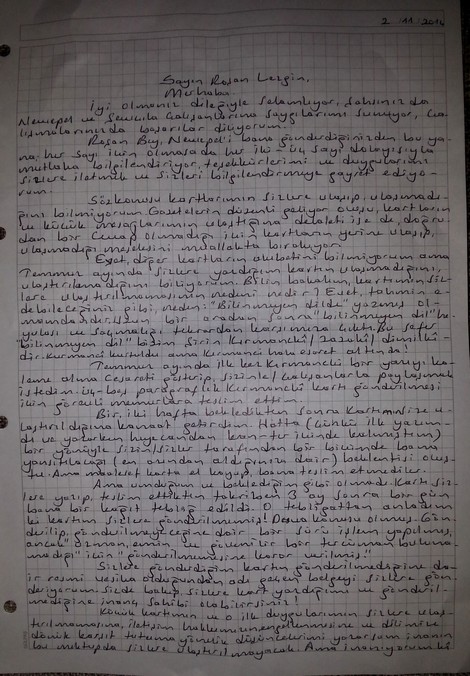 2.11.2014
Sayın Roşan Lezgin,
Merhaba
İyi olmanız dileğiyle selamlıyor, şahsınızda
Newepel ve Şewçila Çalışanlarına saygılarımı sunuyor, ça-
lışmalarınızda başarılar diliyorum.
Roşan Bey, Newepel'i bana gönderdiğinizden bu ya-
na, her sayı için olmasada her iki-üç sayı dolayısıyla
mutlaka bilgilendiriyor, teşekkürlerimi ve duygularımı
sizlere iletmek ve sizleri bilgilendirmeye gayret ediyo-
rum.
Sözkonusu kartlarımın sizlere ulaşıp, ulaşmadı-
ğını bilmiyorum. Gazetelerin düzenli geliyor oluşu, kartların
ve küçük mesajlarımın ulaştığına delaleti ise de, doğru-
dan bir cevap olmadığı için kartların yerine ulaşıp,
ulaşmadığı meselesini muallakta bırakıyor.
Evet, diğer kartların akıbetini bilmiyorum ama
Temmuz ayında sizlere yazdığım kartın ulaşmadığını,
ulaştırılmadığını biliyorum. Bilin bakalım, kartımın siz-
lere ulaştırılmamasının nedeni nedir? Evet, tahmin e-
debileceğiniz gibi, neden "Bilinmeyen dilde" yazmış ol-
mamdandır. Uzun bir aradan sonra "bilinmeyen dil"
ve saçmalığı tekrardan karşımıza çıktı. Bu sefer
"bilinmeyen dil" bizim şirin Kırmanckî/zazakî/dimilkî-
dir. Kurmancî kurtuldu ama Kırmanckî hala esaret altında!
Temmuz ayında ilk kez Kırmanckî bir yazıyı ka-
leme alma cesareti gösterip, sizinle/okuyanlarla paylaşmak
istedim. Üç-beş paragraflık Kırmanckî kartı gönderilmesi
için görevli memurlara teslim ettim.
Bir, iki hafta bekledikten sonra kartımın size u-
laştırıldığına kanaat getirdim. Hatta (çünkü ilk yazım-
dı ve yazarken heyecandan kan-ter içinde kalmıştım)
bir yönüyle sizin/sizler tarafından bir biçimde bana
yansıtılacağı (en azından aldığınıza dair) beklentisi oluş-
tu. Ama maalesef karta el koyup, bana teslim etmediler.
Ama umduğum ve beklediğim gibi olmadı. Kartı siz-
lere yazıp, teslim ettikten takriben 3 ay sonra bir gün
bana bir kağıt tebliğ edildi. O tebligattan anladım
ki kartım sizlere gönderilmemiş! Dava konusu olmuş. Gön-
derilip, gönderilmeyeceğine dair bir sürü işlem yapılmış,
ancak "uzman, emin ve güvenilir bir tercüman bulunma-
madığı" için "gönderilmemesine karar verilmiş."
Sizlere gönderdiğim kartın gönderilmediğine da-
ir resmi vesika olduğundan adı geçen belgeyi sizlere gön-
deriyorum. Sizde bakıp, sizlere kart yazdığıma ve gönderil-
mediğine inanç sahibi olabilirsiniz!
Küçük kartımın ve o ilk duygularımın sizlere ulaş-
tırılmamasına, iletişim hakkımın engellenmesine ve dilimize
dönük karşıt tutuma yönelik düşüncelerimi yazarsam inanın
bu mektupda sizlere ulaştırılmayacak. Ama inanıyorum ki